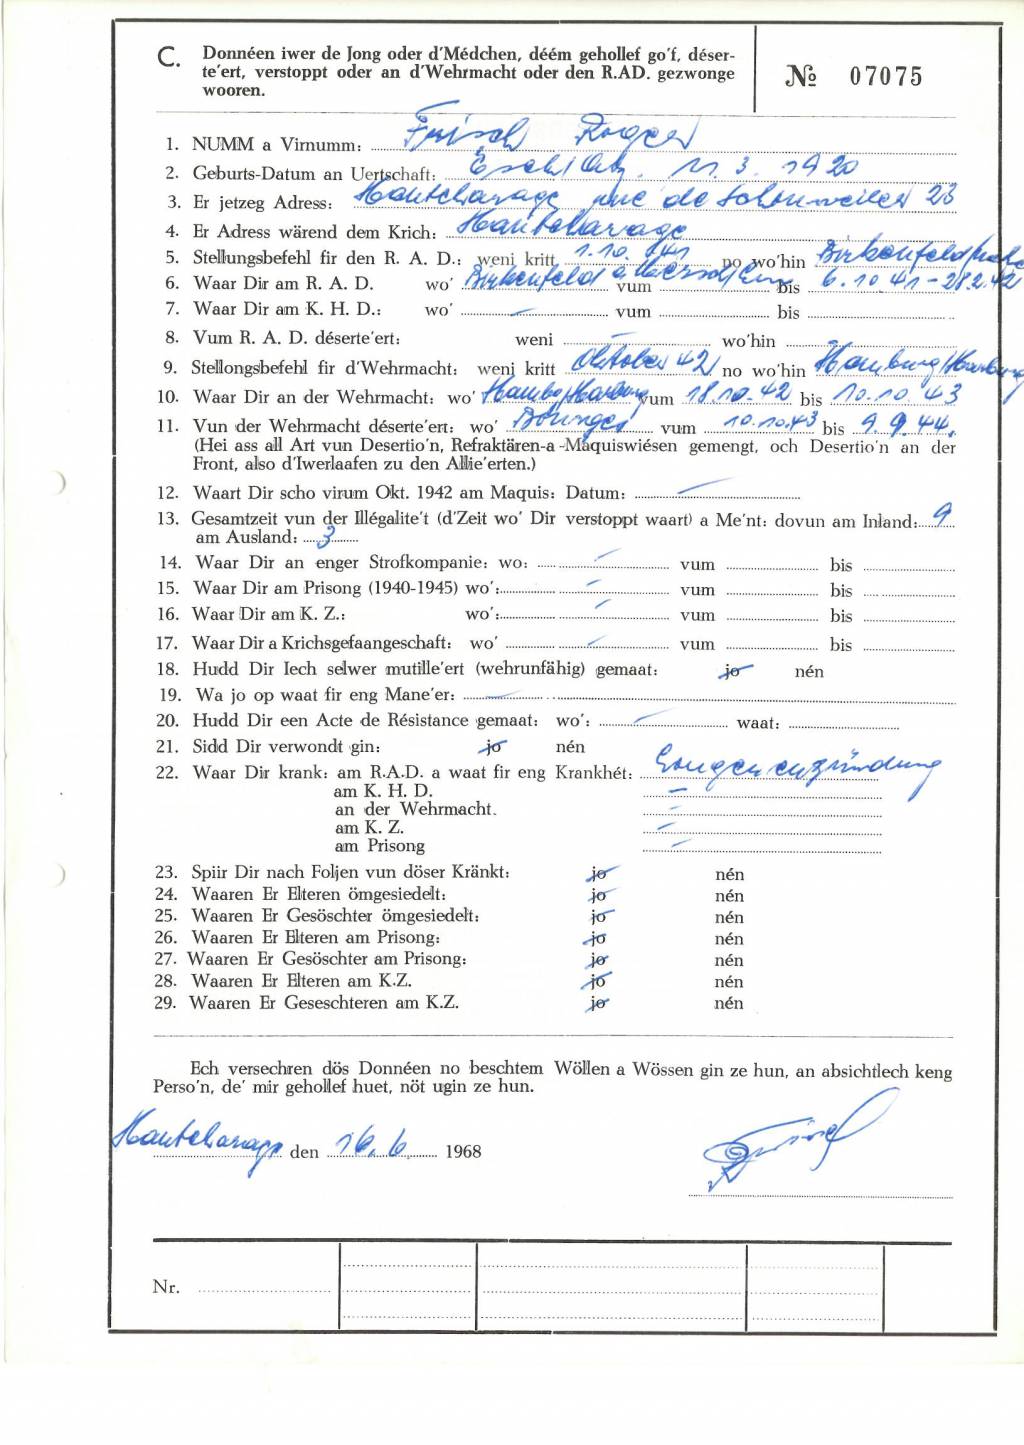 C. Donnéen iwer de Jong oder d'Médchen, déém gehollef go'f, déser-
te'ert, verstoppt oder an d'Wehrmacht oder den R.AD. gezwonge
wooren.
№ 07075
1. NUMM a Virnumm: Frisch Roger
2. Geburts-Datum an Uertschaft: Esch/Alz. 11. 3. 1920
3. Er jetzeg Adress: Hautcharage rue de Schouweiler 23
4. Er Adress wärend dem Krich: Hautcharage
5. Stellungsbefehl fir den R. A. D.: weni kritt 1.10.1941 no wo'hin Birkenfeld/Nahe
6. Waar Dir am R. A. D. wo' Birkenfeld a vum bis 6.10.41-28.2.42
7. Waar Dir am K. H. D.: wo' — vum bis
8. Vum R. A. D. déserte'ert: weni — wo'hin
9. Stellongsbefehl fir d'Wehrmacht: weni kritt Oktober 42 no wo'hin Hamburg/Harburg
10. Waar Dir an der Wehrmacht: wo' Hambg/Harburg vum 18.10.42 bis 10.10.43
11. Vun der Wehrmacht déserte'ert: wo' Bourges vum 10.10.43 bis 9.9.44.
(Hei ass all Art vun Desertio'n, Refraktären-a-Maquiswiésen gemengt, och Desertio'n an der
Front, also d'Iwerlaafen zu den Allie'erten.)
12. Waart Dir scho virum Okt. 1942 am Maquis: Datum: —
13. Gesamtzeit vun der Illégalite't (d'Zeit wo' Dir verstoppt waart) a Me'nt: dovun am Inland: 9
am Ausland: 3
14. Waar Dir an enger Strofkompanie: wo: — vum bis
15. Waar Dir am Prisong (1940-1945) wo': — vum bis
16. Waar Dir am K. Z.: wo': — vum bis
17. Waar Dir a Krichsgefaangeschaft: wo' — vum bis
18. Hudd Dir Iech selwer mutille'ert (wehrunfähig) gemaat: jo nén
19. Wa jo op waat fir eng Mane'er: —
20. Hudd Dir een Acte de Résistance gemaat: wo': — waat:
21. Sidd Dir verwondt gin: jo nén
22. Waar Dir krank: am R.A.D. a waat fir eng Krankhét: Lungenentzündung
am K. H. D. —
an der Wehrmacht. —
am K. Z. —
am Prisong —
23. Spiir Dir nach Foljen vun döser Kränkt: jo nén
24. Waaren Er Elteren ömgesiedelt: jo nén
25. Waaren Er Gesöschter ömgesiedelt: jo nén
26. Waaren Er Elteren am Prisong: jo nén
27. Waaren Er Gesöschter am Prisong: jo nén
28. Waaren Er Elteren am K.Z. jo nén
29. Waaren Er Geseschteren am K.Z. jo nén
Ech versechren dös Donnéen no beschtem Wöllen a Wössen gin ze hun, an absichtlech keng
Perso'n, de' mir gehollef huet, nöt ugin ze hun.
Hautcharage den 16.6. 1968
Frisch
Nr.